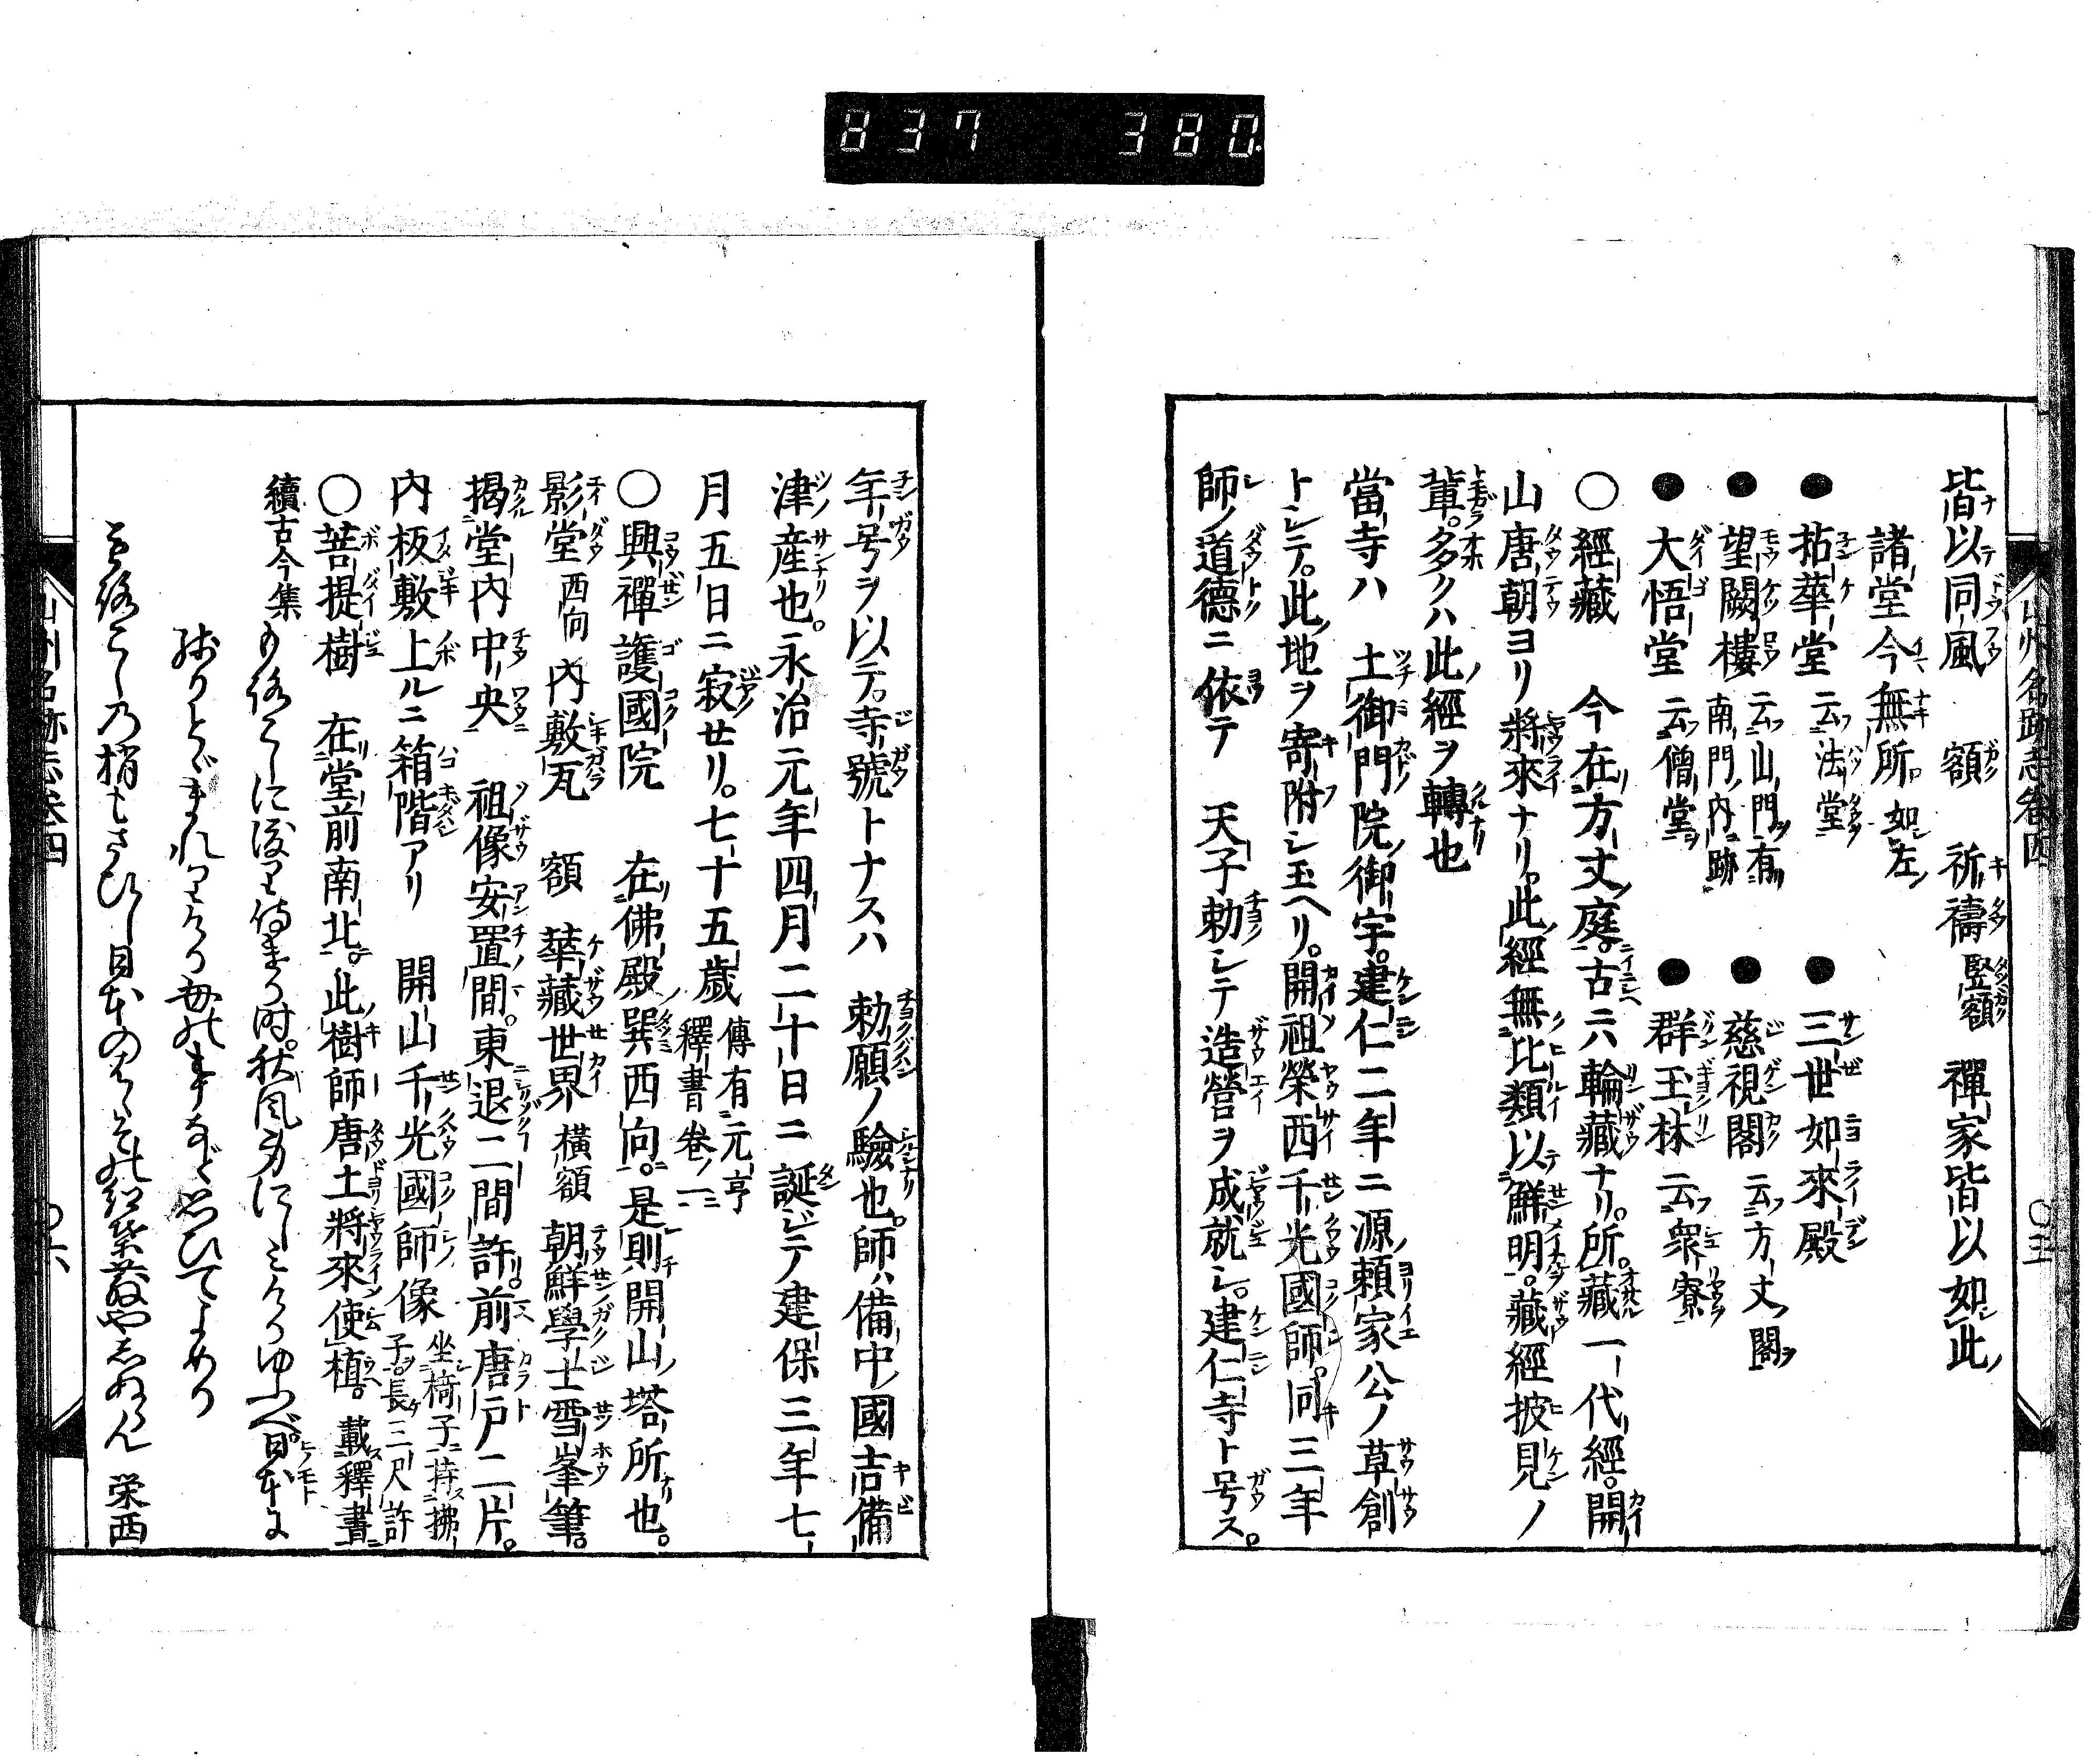 837 380
山州名跡志卷四
皆以同風 額 祈禱 竪額 禪家皆以如此
諸堂今無所 如左
●拈華堂 云法堂 ●三世如來殿
●望闕樓 云山門有南門內跡 ●慈視閣 云方丈閣
●大悟堂 云僧堂 ●群玉林 云衆寮
○經藏 今在方丈庭。古ニ六輪藏ナリ。所藏一代經。開
山唐朝ヨリ將來ナリ。此經無比類以鮮明。藏經披見ノ
輩。多クハ此經ヲ轉也
當寺ハ 土御門院御宇。建仁二年ニ源頼家公ノ草創
トシテ。此地ヲ寄附シ玉ヘリ。開祖榮西千光國師。同三年
師ノ道德ニ依テ 天子勅シテ造營ヲ成就シ。建仁寺ト号ス。
年号ヲ以テ。寺號トナスハ 勅願ノ驗也。師ハ備中國吉備
津産也。永治元年四月二十日ニ誕ジテ建保三年七
月五日ニ寂セリ。七十五歳 傳有元亨釋書卷ノ二
○興禪護國院 在佛殿巽西向。是則開山塔所也。
影堂 西向 內敷瓦 額 華藏世界 橫額 朝鮮學士雪峯筆。
揭堂內中央 祖像安置間。東退二間許。前唐戸二片。
內板敷上ルニ箱階アリ 開山千光國師像 坐椅子持拂子。長三尺許
○菩提樹 在堂前南北。此樹師唐土將來使植。載釋書
續古今集 もろこしに渡り侍ける時。秋風身にしみけるゆふべ。日本に
殘りとゞまれりける母の事など思ひてよめり
もろこしの梢もさびし日本のはゝその紅葉やしぬらん 栄西
山州名跡志卷四 〇六